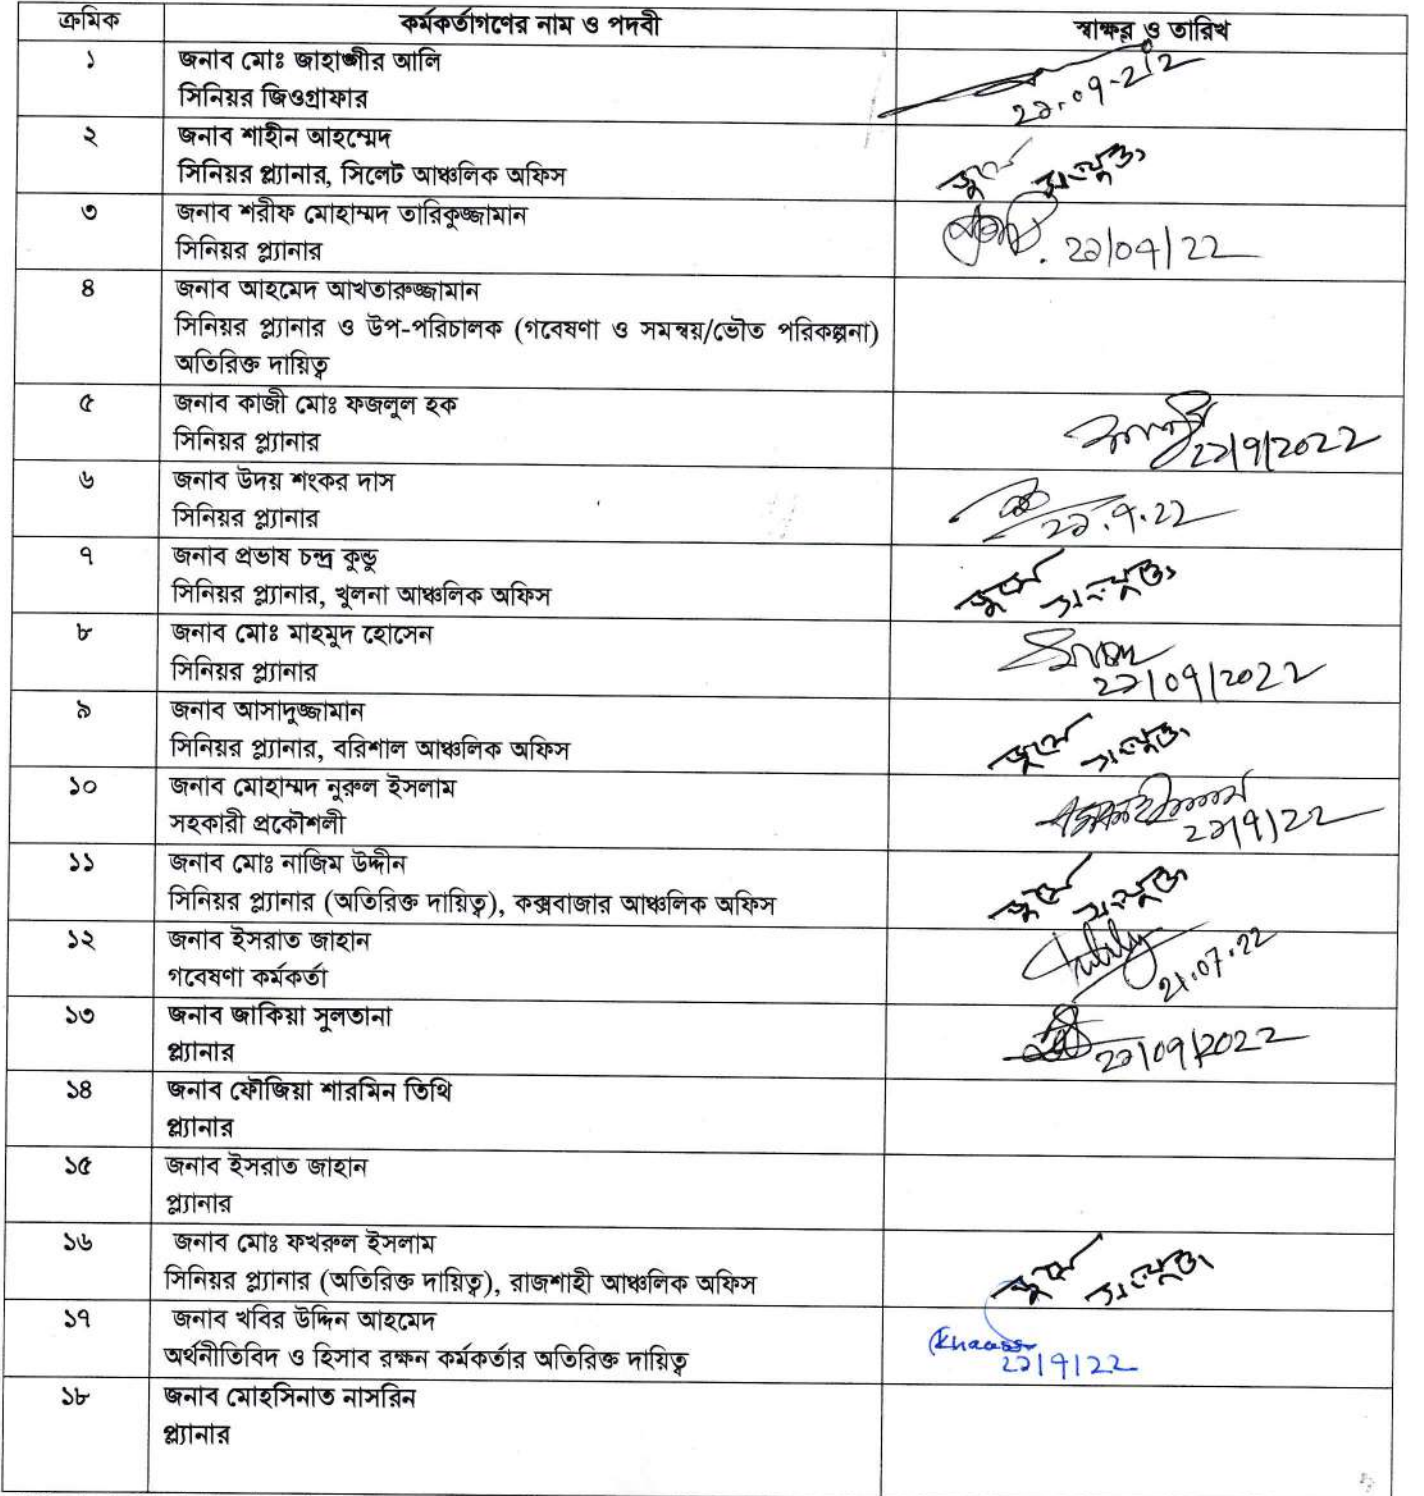 ক্রমিক কর্মকর্তাগণের নাম ও পদবী স্বাক্ষর ও তারিখ
১ জনাব মোঃ জাহাঙ্গীর আলি
সিনিয়র জিওগ্রাফার
২ জনাব শাহীন আহম্মেদ
সিনিয়র প্ল্যানার, সিলেট আঞ্চলিক অফিস
জুমে সংযুক্ত
৩ জনাব শরীফ মোহাম্মদ তারিকুজ্জামান
সিনিয়র প্ল্যানার
২১/০৭/২২
৪ জনাব আহমেদ আখতারুজ্জামান
সিনিয়র প্ল্যানার ও উপ-পরিচালক (গবেষণা ও সমন্বয়/ভৌত পরিকল্পনা)
অতিরিক্ত দায়িত্ব
৫ জনাব কাজী মোঃ ফজলুল হক
সিনিয়র প্ল্যানার
২১/৭/২০২২
৬ জনাব উদয় শংকর দাস
সিনিয়র প্ল্যানার
২১.৭.২২
৭ জনাব প্রভাষ চন্দ্র কুন্ডু
সিনিয়র প্ল্যানার, খুলনা আঞ্চলিক অফিস
জুমে সংযুক্ত
৮ জনাব মোঃ মাহমুদ হোসেন
সিনিয়র প্ল্যানার
২১/০৭/২০২২
৯ জনাব আসাদুজ্জামান
সিনিয়র প্ল্যানার, বরিশাল আঞ্চলিক অফিস
জুমে সংযুক্ত
১০ জনাব মোহাম্মদ নুরুল ইসলাম
সহকারী প্রকৌশলী
২১/৭/২২
১১ জনাব মোঃ নাজিম উদ্দীন
সিনিয়র প্ল্যানার (অতিরিক্ত দায়িত্ব), কক্সবাজার আঞ্চলিক অফিস
জুমে সংযুক্ত
১২ জনাব ইসরাত জাহান
গবেষণা কর্মকর্তা
21.07.22
১৩ জনাব জাকিয়া সুলতানা
প্ল্যানার
২১/০৭/২০২২
১৪ জনাব ফৌজিয়া শারমিন তিথি
প্ল্যানার
১৫ জনাব ইসরাত জাহান
প্ল্যানার
১৬ জনাব মোঃ ফখরুল ইসলাম
সিনিয়র প্ল্যানার (অতিরিক্ত দায়িত্ব), রাজশাহী আঞ্চলিক অফিস
জুমে সংযুক্ত
১৭ জনাব খবির উদ্দিন আহমেদ
অর্থনীতিবিদ ও হিসাব রক্ষন কর্মকর্তার অতিরিক্ত দায়িত্ব
২১/৭/২২
১৮ জনাব মোহসিনাত নাসরিন
প্ল্যানার